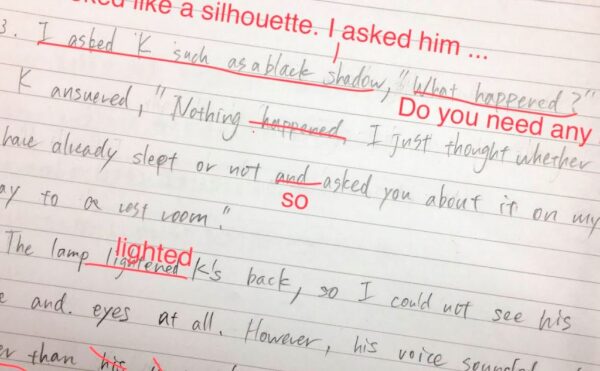 ked like a silhouette. I asked him ...
3. I asked K such as a black shadow, "What happened?"
Do you need any
K answered, "Nothing happened, I just thought whether
have already slept or not and asked you about it on my
so
ay to a rest room."
lighted
The lamp lightened K's back, so I could not see his
e and. eyes at all. However, his voice sounded
er than his